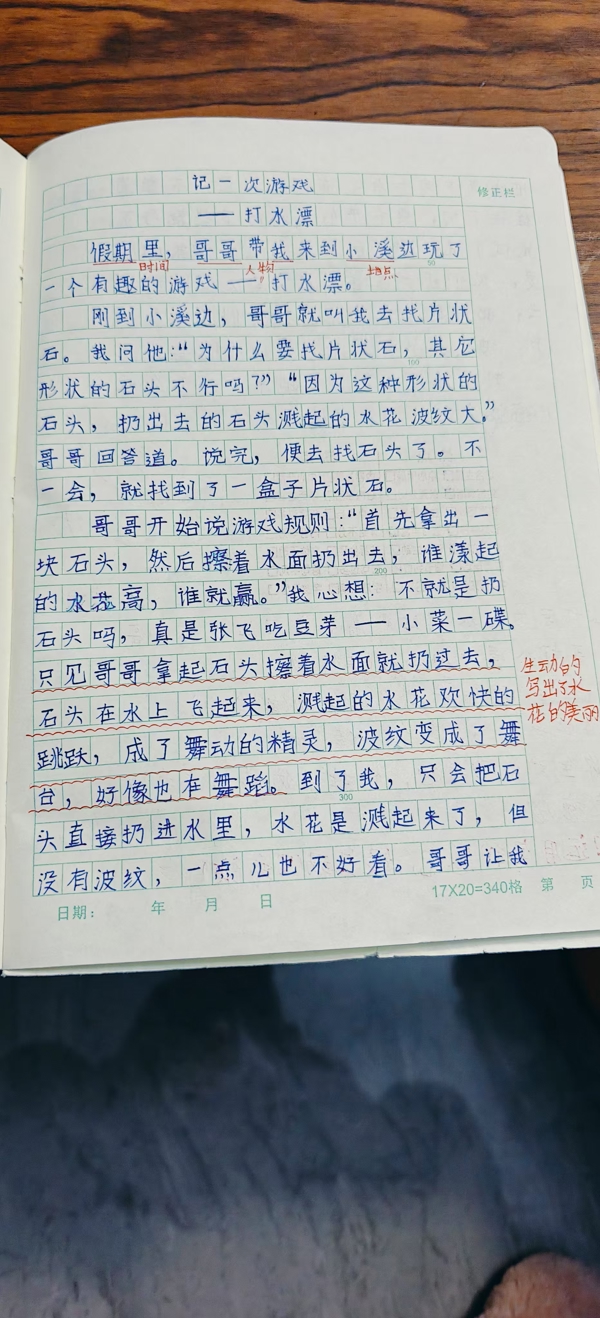 记一次游戏
修正栏
——打水漂
假期里，哥哥带我来到小溪边玩了
时间 人物 地点
一个有趣的游戏——打水漂。
刚到小溪边，哥哥就叫我去找片状
石。我问他：“为什么要找片状石，其它
形状的石头不行吗？”“因为这种形状的
石头，扔出去的石头溅起的水花波纹大。”
哥哥回答道。说完，便去找石头了。不
一会，就找到了一盒子片状石。
哥哥开始说游戏规则：“首先拿出一
块石头，然后擦着水面扔出去，谁漾起
的水花高，谁就赢。”我心想：不就是扔
石头吗，真是张飞吃豆芽——小菜一碟。
只见哥哥拿起石头擦着水面就扔过去，
石头在水上飞起来，溅起的水花欢快的
跳跃，成了舞动的精灵，波纹变成了舞
台，好像也在舞蹈。到了我，只会把石
头直接扔进水里，水花是溅起来了，但
没有波纹，一点儿也不好看。哥哥让我
生动的
写出了水
花的美丽
100
200
300
17X20=340格 第 页
日期： 年 月 日